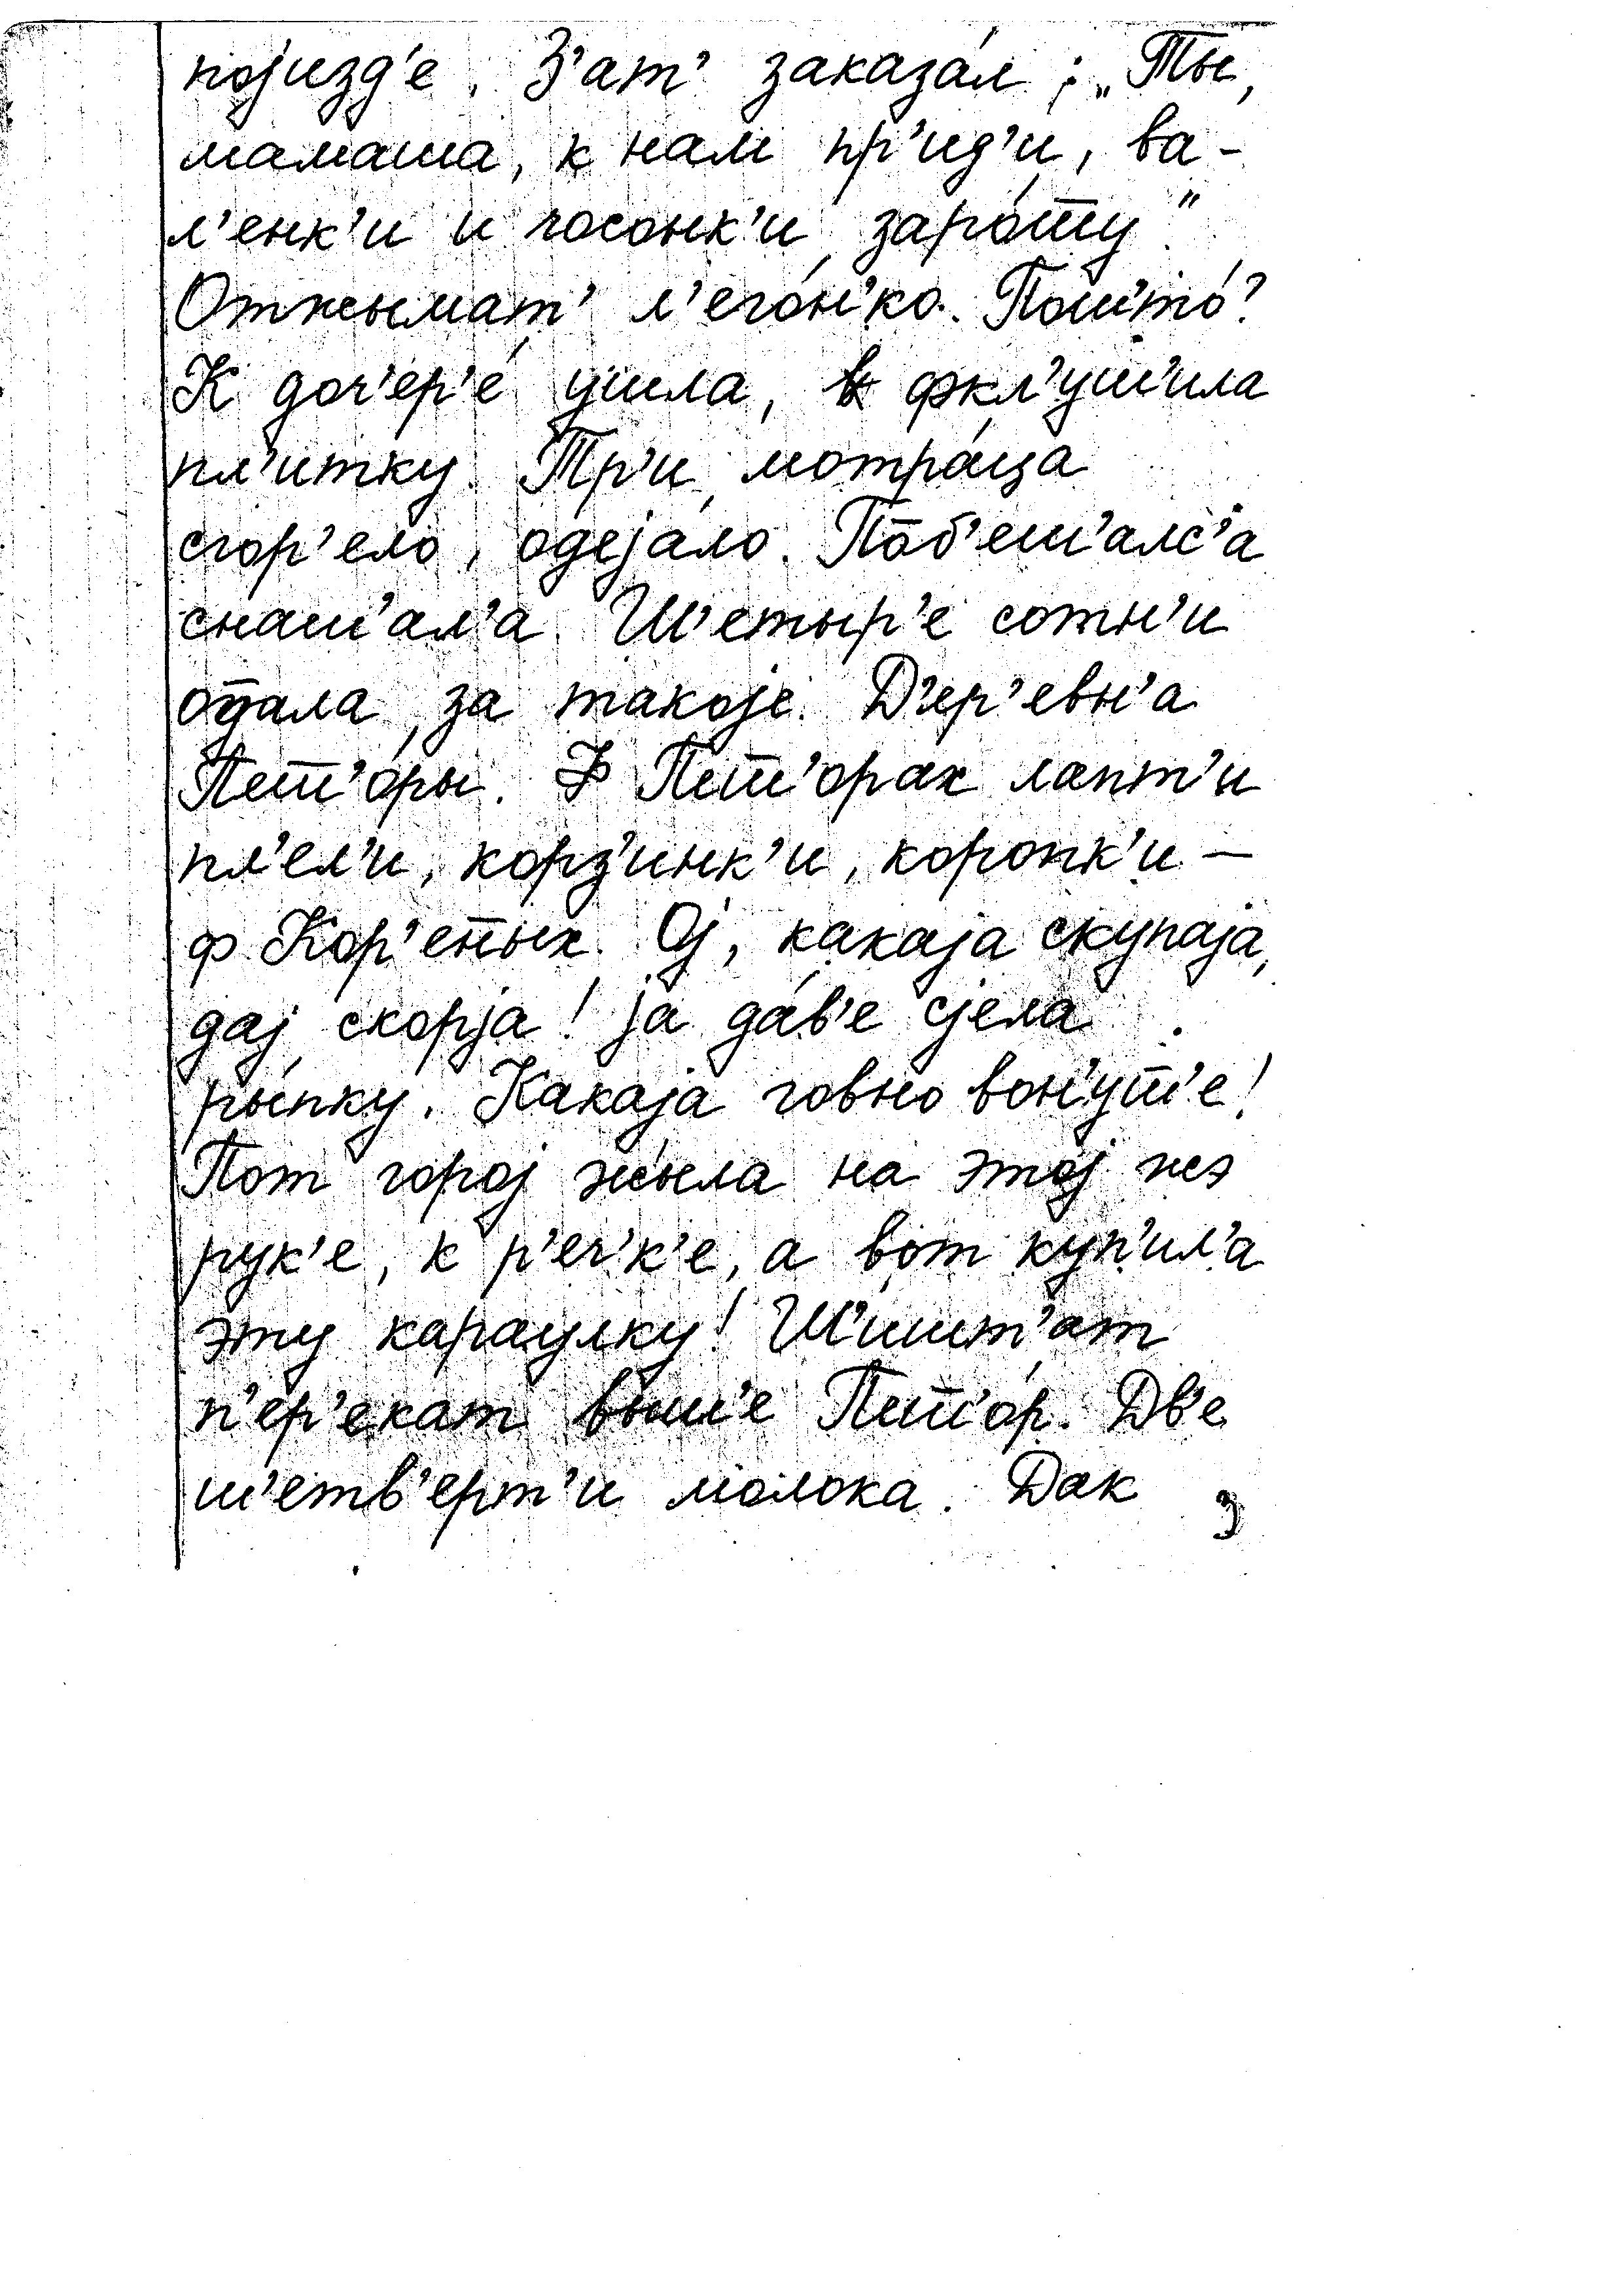 појизд'е. З'ат' заказа́л: „Ты,
мамаша, к нам пр'ид'и, ва-
л'енк'и и чосонк'и заро́т̅у."
Отжымат' л'его́н'ко. Пош'то́?
К доч'ер'е́ ушла, фкл'уш'ила
пл'итку. Тр'и мотра́ца
сгор'ело, одеја́ло. По̄б'еш'алс'а
снаш'ал'а. Ш'етыр'е сотн'и
от̅ала за такоје. Д'ер'евн'а
Пет̅'о́ры. Ф Пет̅'орах лапт'и
пл'ел'и, корз'инк'и, коропк'и —
ф Кор'ел̅ых. Ој, какаја скупаја,
дај скорја! ја да́в'е сјела
рыпку. Какаја говно вон'ут̅'е!
Пот горој жыла на этој жэ
рук'е, к р'еч'к'е, а вот куп'ил'а
эту караулку! Ш'ишт'ат
п'ер'екат выш'е Пет̅'ор. Дв'е
ш'етв'ерт'и молока. Дак
3